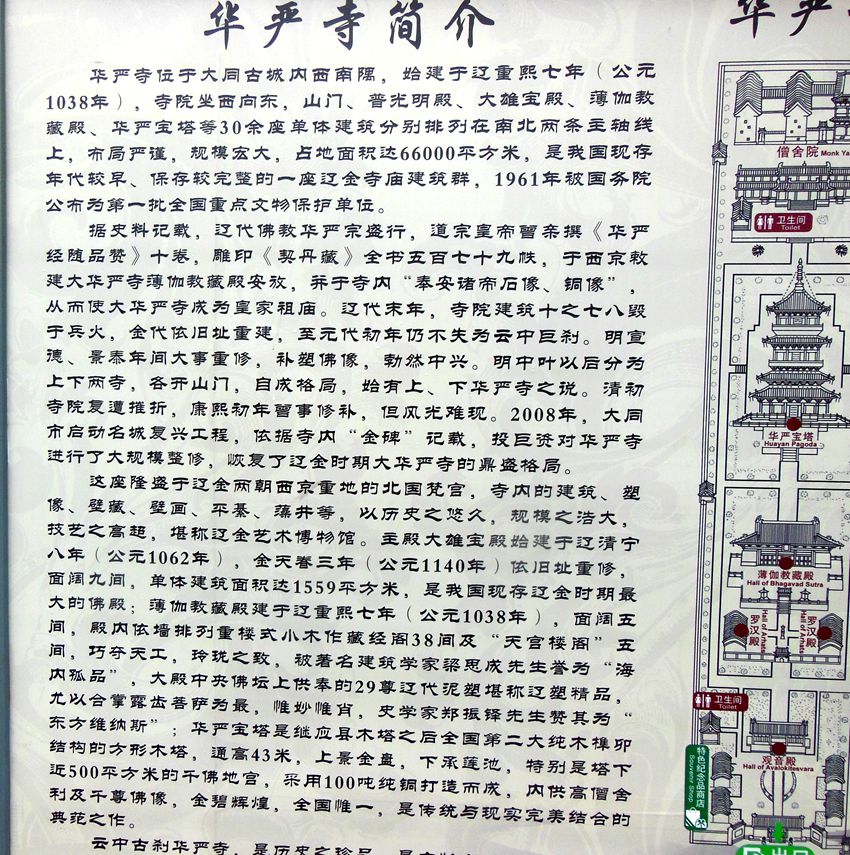 华严寺简介
华严寺位于大同古城内西南隅，始建于辽重熙七年（公元
1038年），寺院坐西向东，山门、普光明殿、大雄宝殿、薄伽教
藏殿、华严宝塔等30余座单体建筑分别排列在南北两条主轴线
上，布局严谨，规模宏大，占地面积达66000平方米，是我国现存
年代较早、保存较完整的一座辽金寺庙建筑群，1961年被国务院
公布为第一批全国重点文物保护单位。
据史料记载，辽代佛教华严宗盛行，道宗皇帝曾亲撰《华严
经随品赞》十卷，雕印《契丹藏》全书五百七十九帙，于西京敕
建大华严寺薄伽教藏殿安放，并于寺内“奉安诸帝石像、铜像”，
从而使大华严寺成为皇家祖庙。辽代末年，寺院建筑十之七八毁
于兵火，金代依旧址重建，至元代初年仍不失为云中巨刹。明宣
德、景泰年间大事重修，补塑佛像，勃然中兴。明中叶以后分为
上下两寺，各开山门，自成格局，始有上、下华严寺之说。清初
寺院复遭摧折，康熙初年曾事修补，但风光难现。2008年，大同
市启动名城复兴工程，依据寺内“金碑”记载，投巨资对华严寺
进行了大规模整修，恢复了辽金时期大华严寺的鼎盛格局。
这座隆盛于辽金两朝西京重地的北国梵宫，寺内的建筑、塑
像、壁藏、壁画、平棊、藻井等，以历史之悠久，规模之浩大，
技艺之高超，堪称辽金艺术博物馆。主殿大雄宝殿始建于辽清宁
八年（公元1062年），金天眷三年（公元1140年）依旧址重修，
面阔九间，单体建筑面积达1559平方米，是我国现存辽金时期最
大的佛殿；薄伽教藏殿建于辽重熙七年（公元1038年），面阔五
间，殿内依墙排列重楼式小木作藏经阁38间及“天宫楼阁”五
间，巧夺天工，玲珑之致，被著名建筑学家梁思成先生誉为“海
内孤品”，大殿中央佛坛上供奉的29尊辽代泥塑堪称辽塑精品，
尤以合掌露齿菩萨为最，惟妙惟肖，史学家郑振铎先生赞其为“
东方维纳斯”；华严宝塔是继应县木塔之后全国第二大纯木榫卯
结构的方形木塔，通高43米，上景金盘，下承莲池，特别是塔下
近500平方米的千佛地宫，采用100吨纯铜打造而成，内供高僧舍
利及千尊佛像，金碧辉煌，全国惟一，是传统与现实完美结合的
典范之作。
云中古刹华严寺，是历史之珍品，是
华严
僧舍院 Monk Ya
卫生间
Toilet
华严宝塔
Huayan Pagoda
薄伽教藏殿
Hall of Bhagavad Sutra
罗汉殿
Hall of Arhats
Hall of Arhats
罗汉殿
卫生间
Toilet
观音殿
Hall of Avalokitesvara
特色纪念品商店
Souvenir Shop
出口